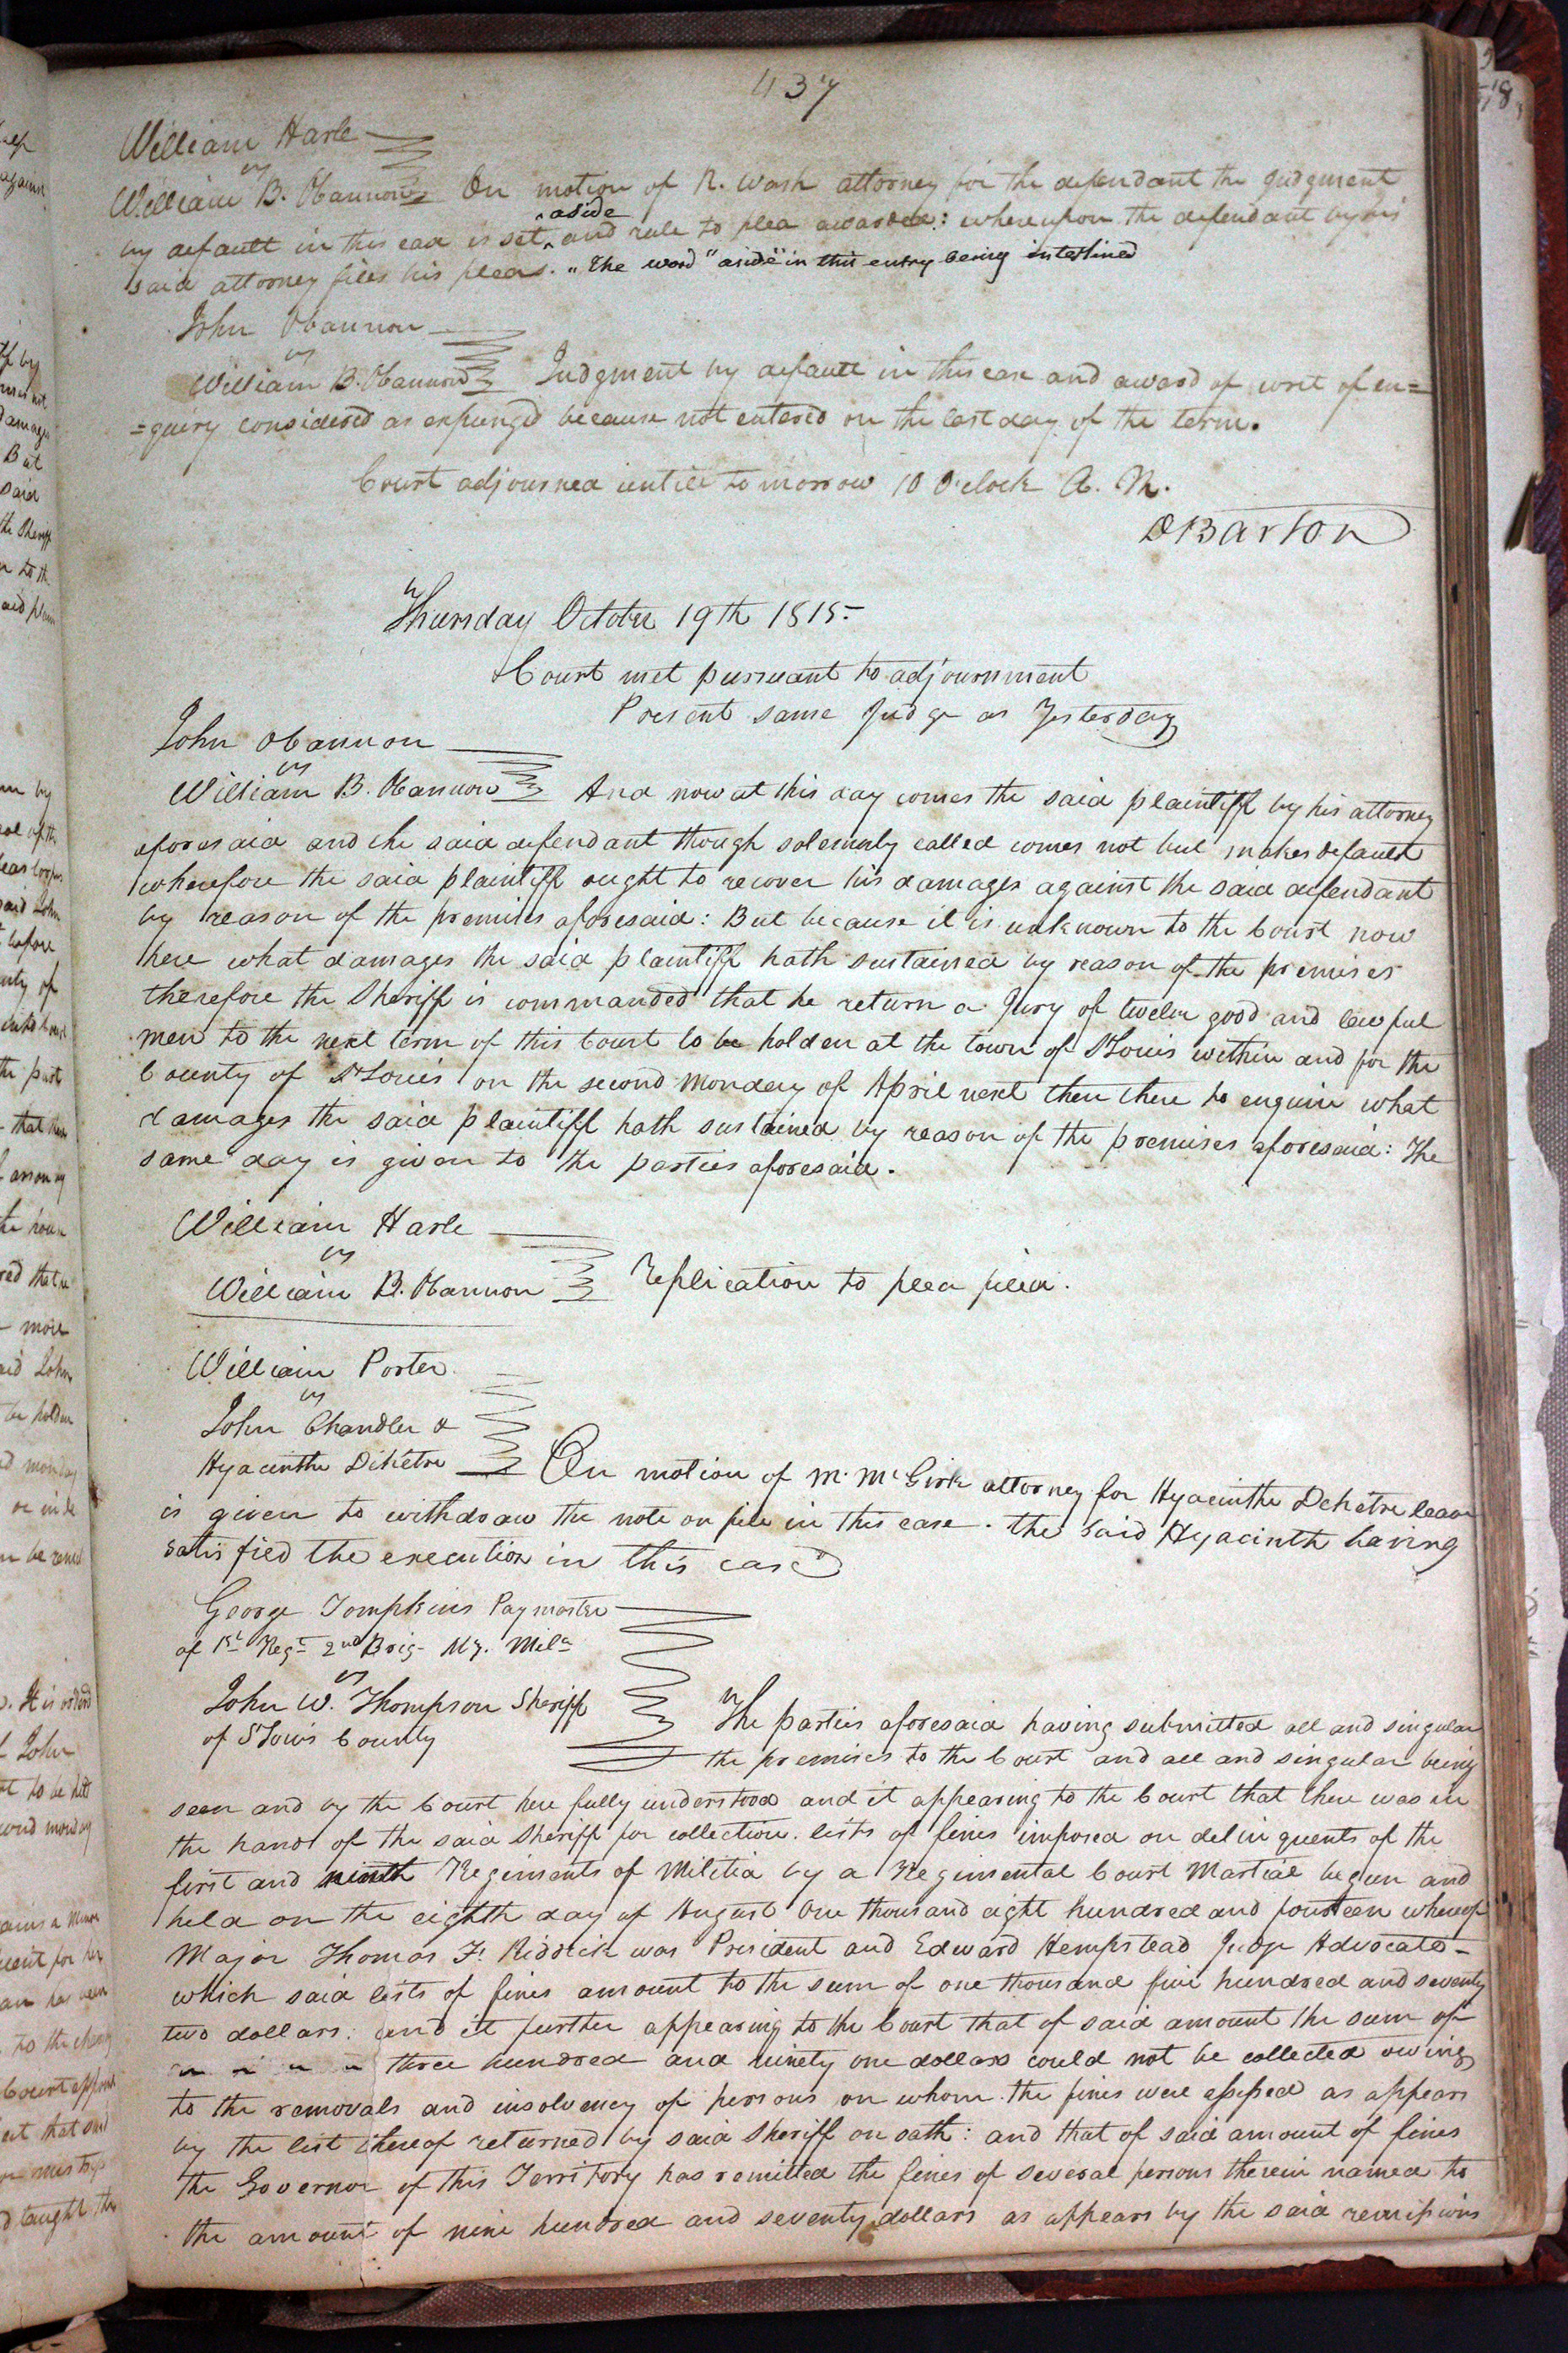 437
William Harle
vs
William B. Obannon On motion of R. Wash attorney for the defendant the Judgment
by default in this case is set ^aside and rule to plea awarded: whereupon the defendant by his
said attorney files his pleas. "The word "aside" in this entry being interlined
John Obannon
vs
William B. Obannon Judgment by default in this case and award of writ of en=
=quiry considered as expunged because not entered on the last day of the term.
Court adjourned untill tomorrow 10 O'clock A. M.
D Barton
Thursday October 19th 1815-
Court met pursuant to adjournment
Present same Judge as Yesterday
John Obannon
vs
William B. Obannon And now at this day comes the said plaintiff by his attorney
aforesaid and the said defendant though solemnly called comes not but makes default
wherefore the said plaintiff ought to recover his damages against the said defendant
by reason of the premises aforesaid: But because it is unknown to the Court now
here what damages the said plaintiff hath sustained by reason of the premises
therefore the Sheriff is commanded that he return a Jury of twelve good and lawful
men to the next term of this Court to be holden at the town of St Louis within and for the
County of St Louis on the second Monday of April next then there to enquire what
damages the said plaintiff hath sustained by reason of the premises aforesaid: The
same day is given to the parties aforesaid.
William Harle
vs
William B. Obannon Replication to plea filed.
William Porter
vs
John Chandler &
Hyacinthe Dehetre On motion of M. McGirk attorney for Hyacinthe Dehetre leave
is given to withdraw the note on file in this case. the said Hyacinth having
satisfied the execution in this case
George Tompkins Paymaster
of 1st Regt 2nd Brig. My. Mila
vs
John W. Thompson Sheriff
of St Louis County
The parties aforesaid having submitted all and singular
the premises to the Court and all and singular being
seen and by the Court here fully understood and it appearing to the Court that there was in
the hands of the said Sheriff for collection. lists of fines imposed on delinquents of the
first and ninth Regiments of Militia by a Regimental Court Martial begun and
held on the eighth day of August One thousand eight hundred and fourteen whereof
Major Thomas F. Riddick was President and Edward Hempstead Judge Advocate-
which said lists of fines amount to the sum of one thousand five hundred and seventy
two dollars: and it further appearing to the Court that of said amount the sum of
three hundred and ninety one dollars could not be collected owing
to the removals and insolvency of persons on whom the fines were assessed as appears
by the list thereof returned by said Sheriff on oath: and that of said amount of fines
the Governor of this Territory has remitted the fines of several persons therein named to
the amount of nine hundred and seventy dollars as appears by the said remissions